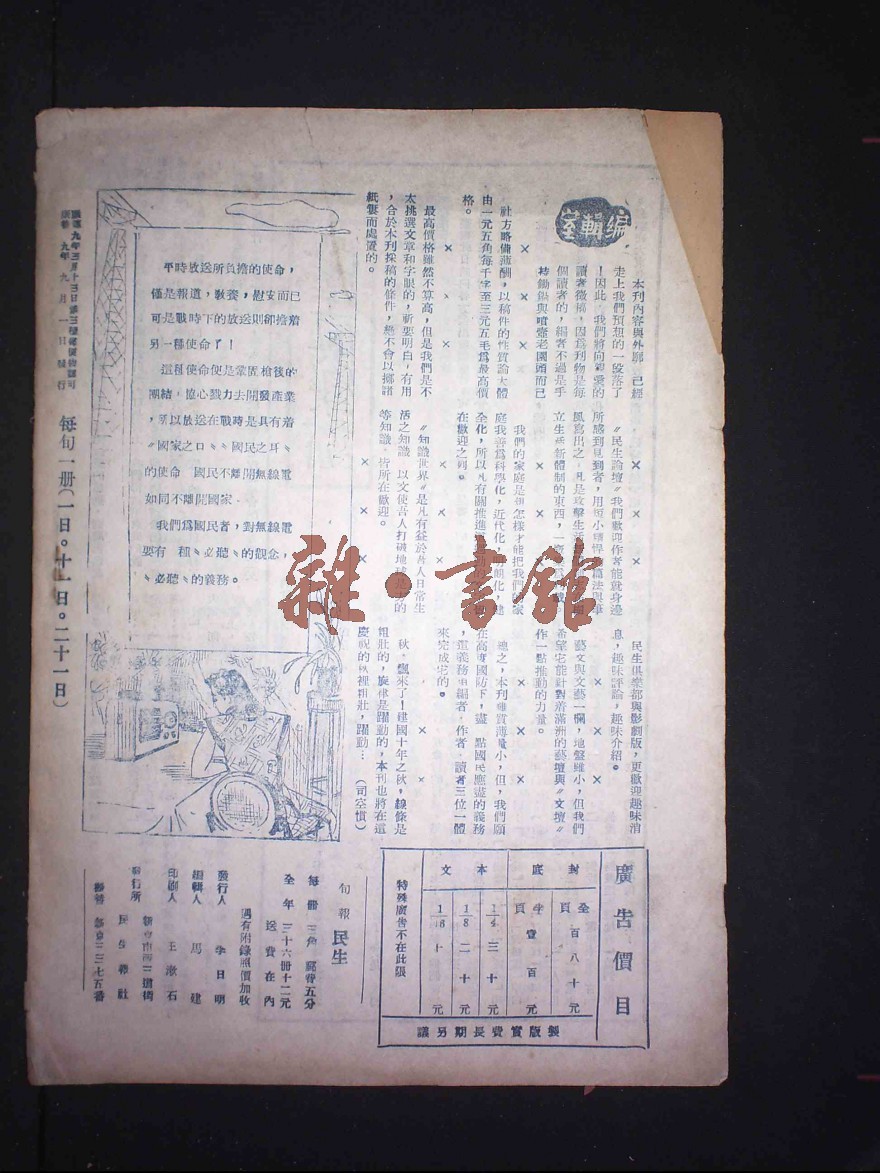 編輯室
本刋內容與外廓　已經
走上我們預想的一段落了
！因此　我們將向親愛的
讀者徵稿，因爲刋物是每
個讀者的，編者不過是手
持鋤鍤與噴壺老園頭而已
×　×　×
社方略備薄酬，以稿件的性質論大體
由一元五角每千字至三元五毛爲最高價
格。
×　×　×
最高價格雖然不算高，但是我們是不
太挑選文章和字眼的，斬要明白，有用
，合於本刋採稿的條件，絕不會以擲諸
紙簍而處置的。
〝民生論壇〞我們歡迎作者能就身邊
所感到見到者，用
風寫出之
立生活新體制的東西，一
我們的家庭是怎樣才能把我們的家
庭我善爲科學化，近代化
全化，所以凡有關推進
在歡迎之列。
〝知識世界〞是凡有益於吾人日常生
活之知識　以文使吾人打破地球
等知識，皆所在歡迎。
×　×　×
民生俱樂部與影劇版，更歡迎趣味消
息，趣味評論，趣味介紹。
×　×　×
藝文與文藝一欄，地盤雖小，但我們
希望它能針對着滿洲的藝壇與〝文壇〞
作一點推動的力量。
×　×　×
總之，本刋雖質薄量小，但，我們願
在高度國防下，盡　點國民應盡的義務
，這義務由編者，作者　讀者三位一體
來完成它的。
×　×　×
秋，飄來了！建國十年之秋，線條是
粗壯的，旋律是躍動的，本刋也將在這
慶祝的秋裡粗壯，躍動…（司空慣）
平時放送所負擔的使命，
僅是報道，敎養，慰安而已
可是戰時下的放送則卻擔着
另一種使命了！
這種使命便是鞏固槍後的
團結，協心戮力去開發產業
，所以放送在戰時是具有着
〝國家之口〞〝國民之耳〞
的使命　國民不離開無線電
如同不離開國家。
我們爲國民者，對無線電
要有　種〝必聽〞的觀念，
〝必聽〞的義務。
雜・書館
康德九年九月一日發行
每旬一册（一日。十一日。二十一日）
廣告價目
封底
全頁　百八十元
半頁　壹百元
本文
1/4　三十元
1/8　二十元
1/16　十元
特殊廣告不在此限
製版實費長期另議
旬報　民生
每册　三角　郵費五分
全年　三十六册十二元
送費在內
遇有附錄照價加收
發行人　李日明
編輯人　馬建
印刷人　王漱石
發行所　民生報社